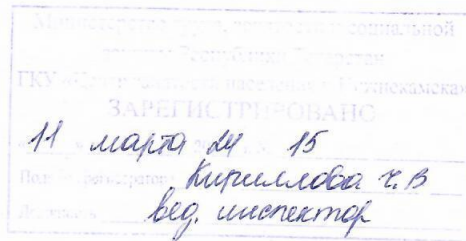 Министерство труда, занятости и социальной
защиты Республики Татарстан
ГКУ «Центр занятости населения г. Нижнекамска»
ЗАРЕГИСТРИРОВАНО
11 марта 24 15
Кириллова Ч.В
вед. инспектор